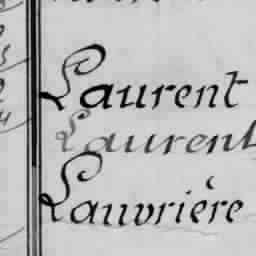 Laurent
Laurent
Lauvrière